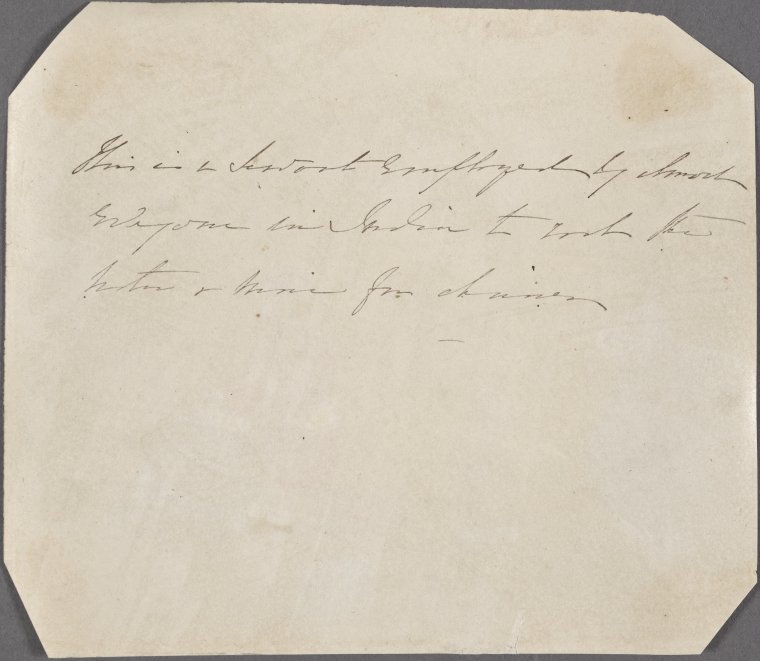 This is a Servant employed by almost
everyone in India to cool the
water & wine for dinner